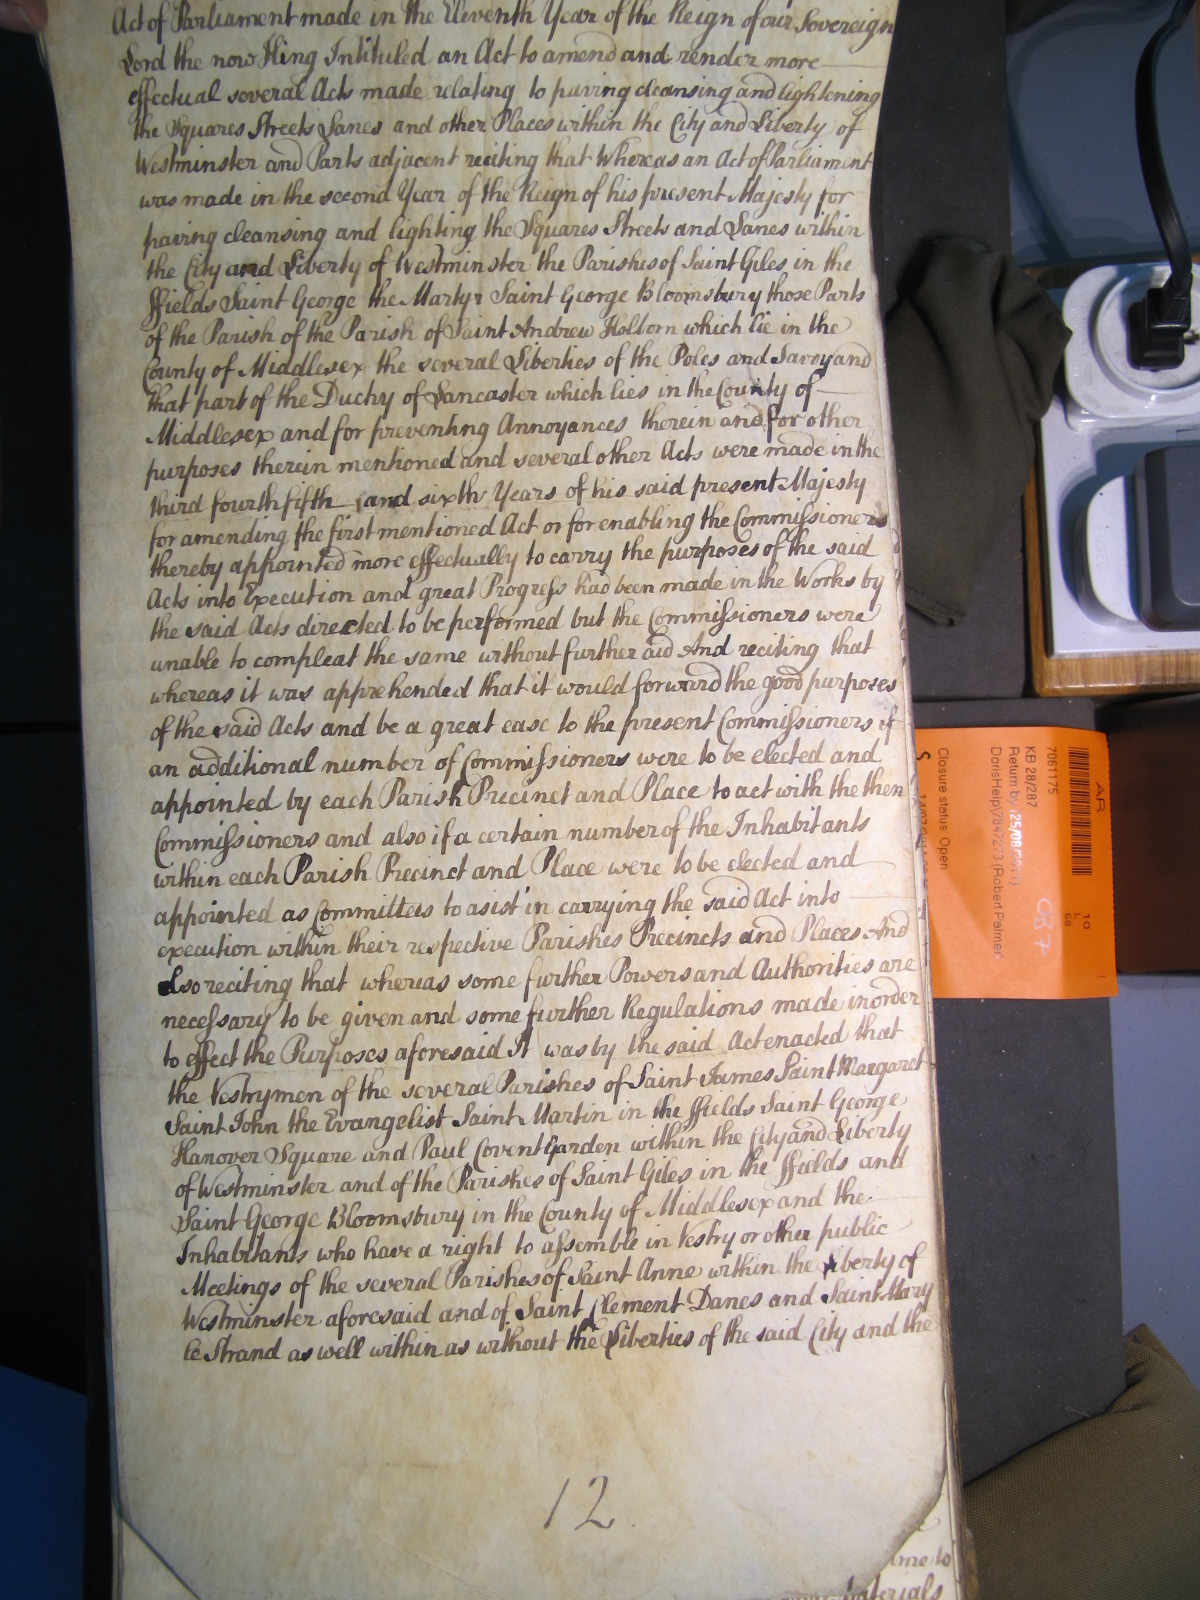 Act of Parliament made in the Eleventh Year of the Reign of our Sovereign
Lord the now King Intituled an Act to amend and render more
effectual several Acts made relating to paving cleansing and lightening
the Squares Streets Lanes and other Places within the City and Liberty of
Westminster and Parts adjacent reciting that Whereas an Act of Parliament
was made in the second Year of the Reign of his present Majesty for
paving cleansing and lighting the Squares Streets and Lanes within
the City and Liberty of Westminster the Parishes of Saint Giles in the
ffields Saint George the Martyr Saint George Bloomsbury those Parts
of the Parish of the Parish of Saint Andrew Holborn which lie in the
County of Middlesex the several Liberties of the Poles and Savoy and
that part of the Duchy of Lancaster which lies in the County of
Middlesex and for preventing Annoyances therein and for other
purposes therein mentioned and several other Acts were made in the
third fourth fifth and sixth Years of his said present Majesty
for amending the first mentioned Act or for enabling the Commissioners
thereby appointed more effectually to carry the purposes of the said
Acts into Execution and great Progress had been made in the Works by
the said Acts directed to be performed but the Commissioners were
unable to compleat the same without further aid And reciting that
whereas it was apprehended that it would forward the good purposes
of the said Acts and be a great ease to the present Commissioners if
an additional number of Commissioners were to be elected and
appointed by each Parish Precinct and Place to act with the then
Commissioners and also if a certain number of the Inhabitants
within each Parish Precinct and Place were to be elected and
appointed as Committees to asist in carrying the said Act into
execution within their respective Parishes Precincts and Places And
also reciting that whereas some further Powers and Authorities are
necessary to be given and some further Regulations made in order
to effect the Purposes aforesaid It was by the said Act enacted that
the Vestrymen of the several Parishes of Saint James Saint Margaret
Saint John the Evangelist Saint Martin in the ffields Saint George
Hanover Square and Paul Covent Garden within the City and Liberty
of Westminster and of the Parishes of Saint Giles in the ffields and
Saint George Bloomsbury in the County of Middlesex and the
Inhabitants who have a right to assemble in Vestry or other public
Meetings of the several Parishes of Saint Anne within the Liberty of
Westminster aforesaid and of Saint Clement Danes and Saint Mary
le Strand as well within as without the Liberties of the said City and the
12
time to
materials
AR
7061175
KB 28/287
Return by (25/08/2011)
DorisHelp\7847273 (Robert Palmer)
Closure status: Open
S
10
L
68